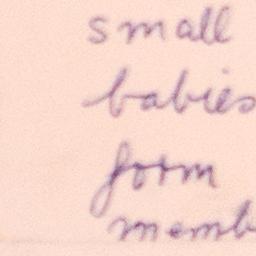 small
babies
form
memb